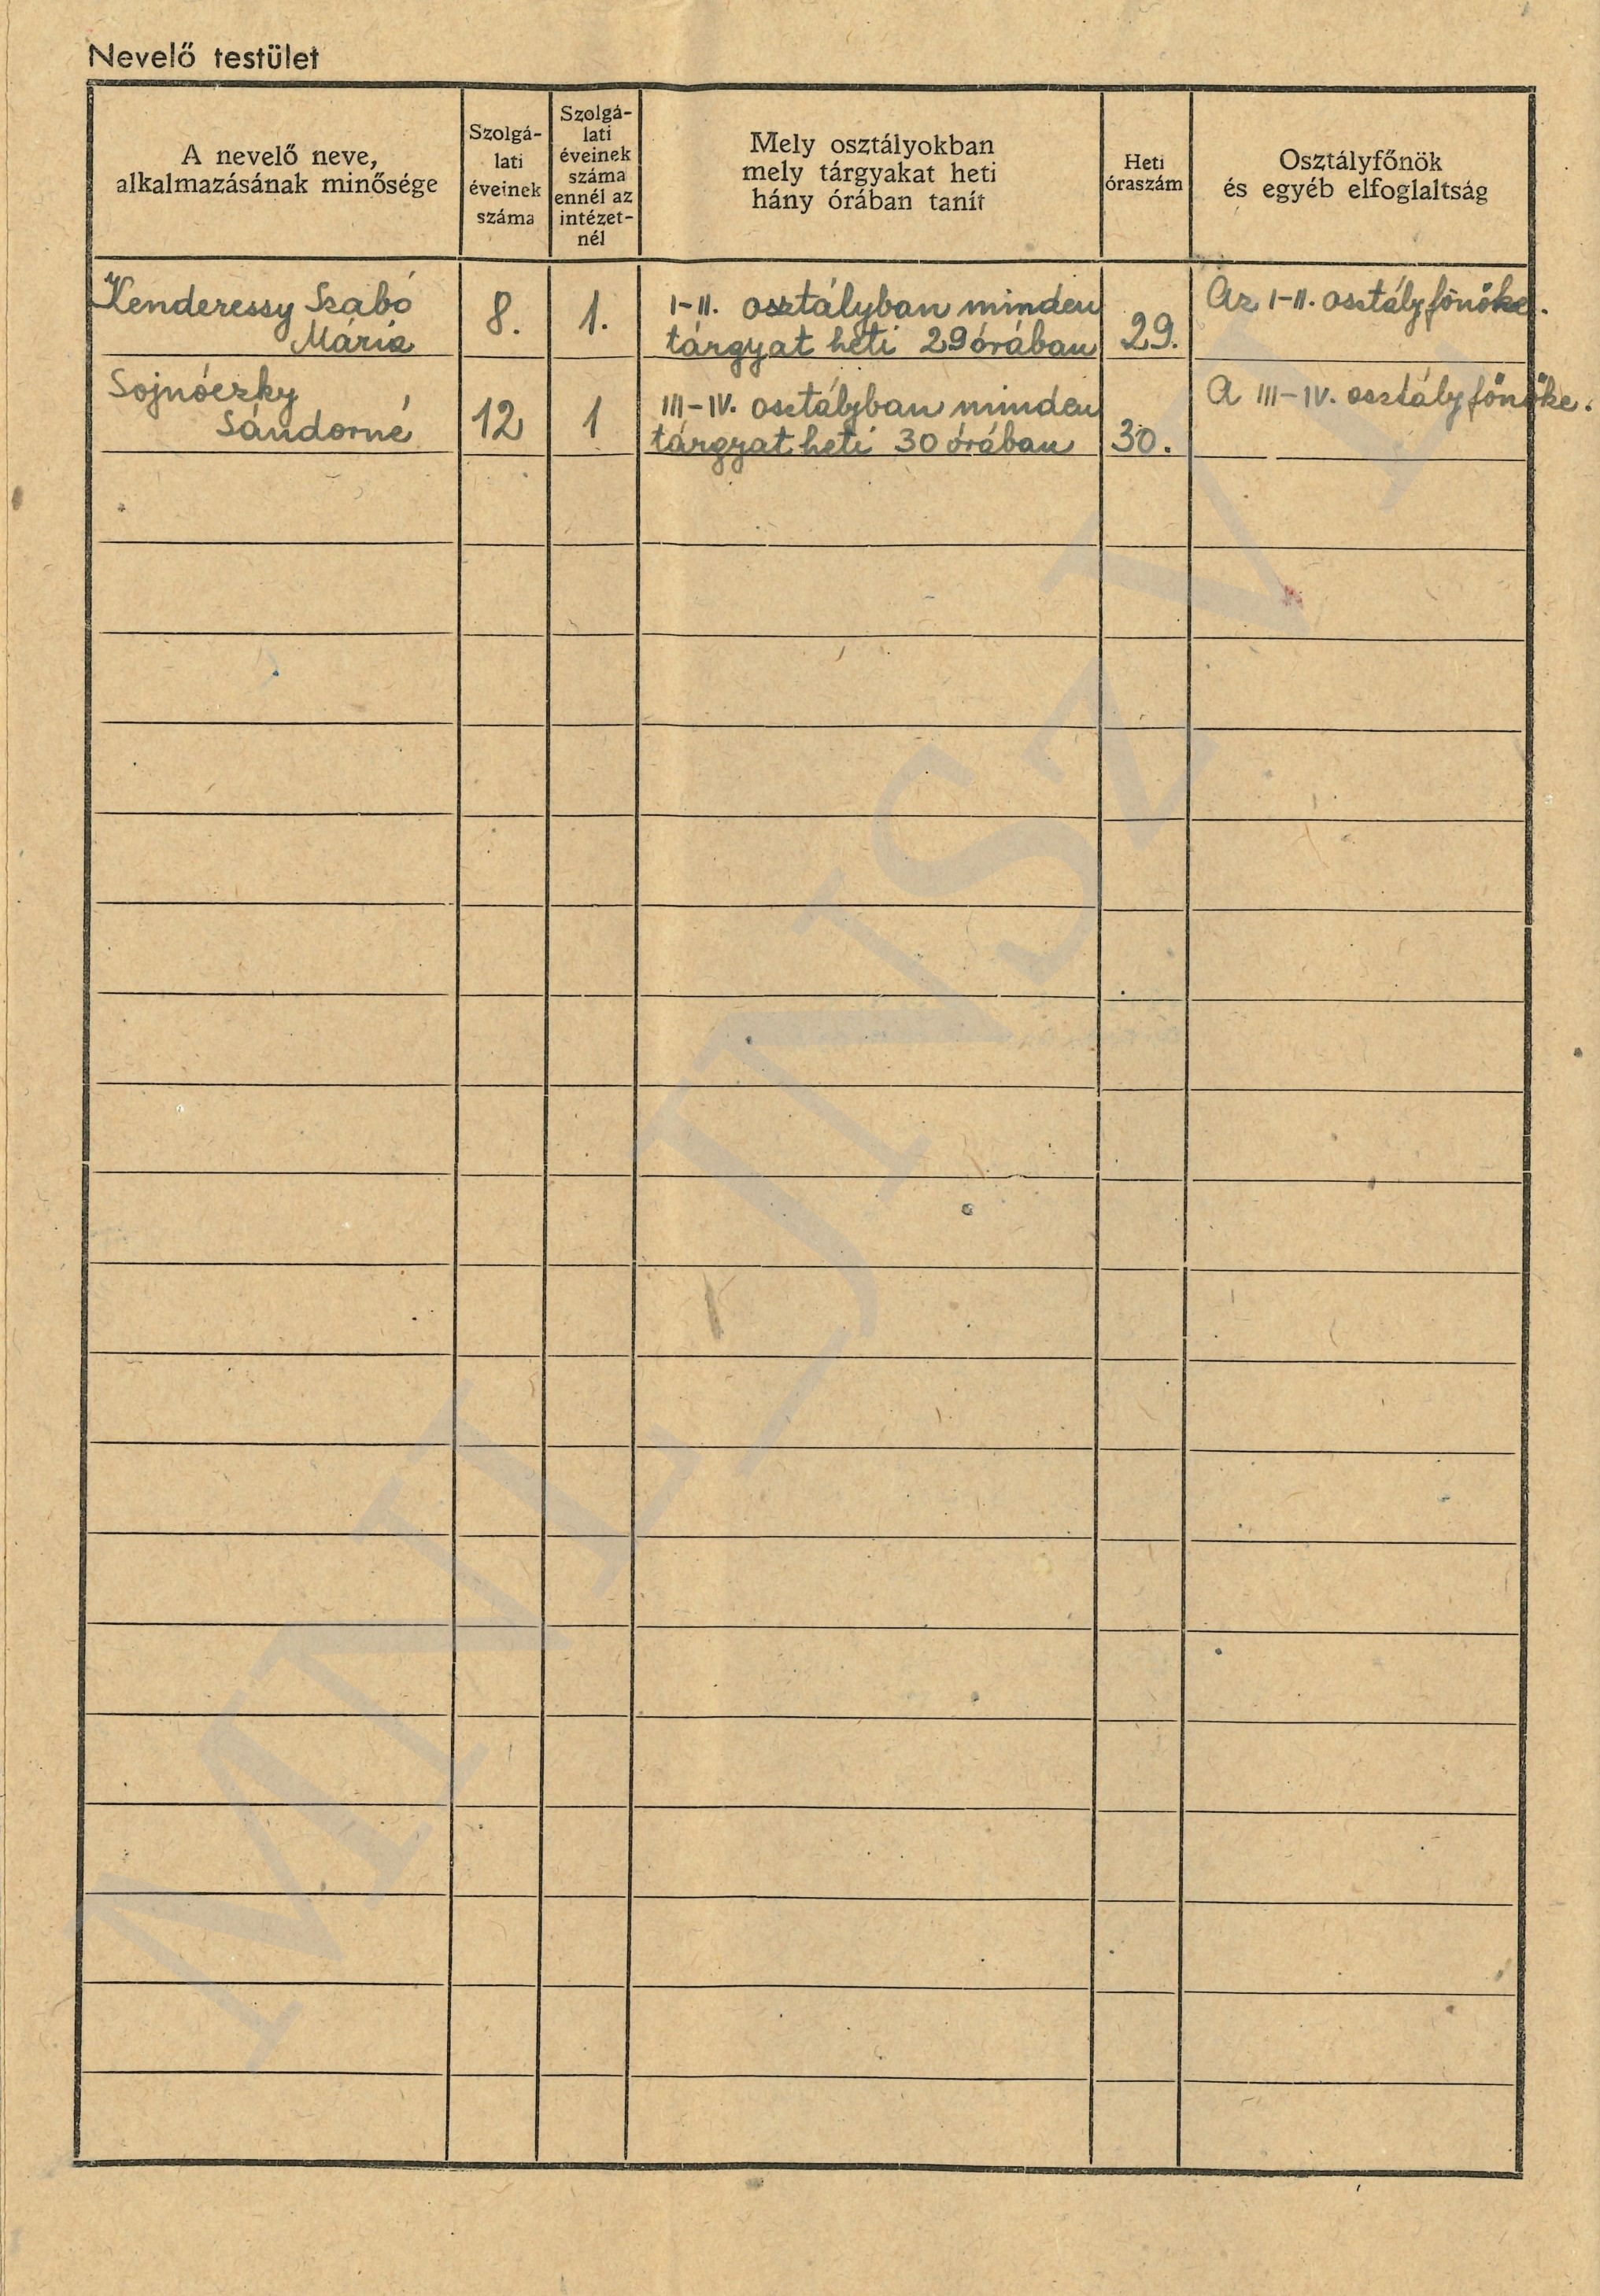 Nevelő testület
A nevelő neve,
alkalmazásának minősége
Szolgá-
lati
éveinek
száma
Szolgá-
lati
éveinek
száma
ennél az
intézet-
nél
Mely osztályokban
mely tárgyakat heti
hány órában tanít
Heti
óraszám
Osztályfőnök
és egyéb elfoglaltság
Kenderessy Szabó
Mária
8.
1.
I-II. osztályban minden
tárgyat heti 29 órában
29.
Az I-II. osztályfőnöke.
Sojnóczky
Sándorné
12
1
III-IV. osztályban minden
tárgyat heti 30 órában
30.
A III-IV. osztályfőnöke.